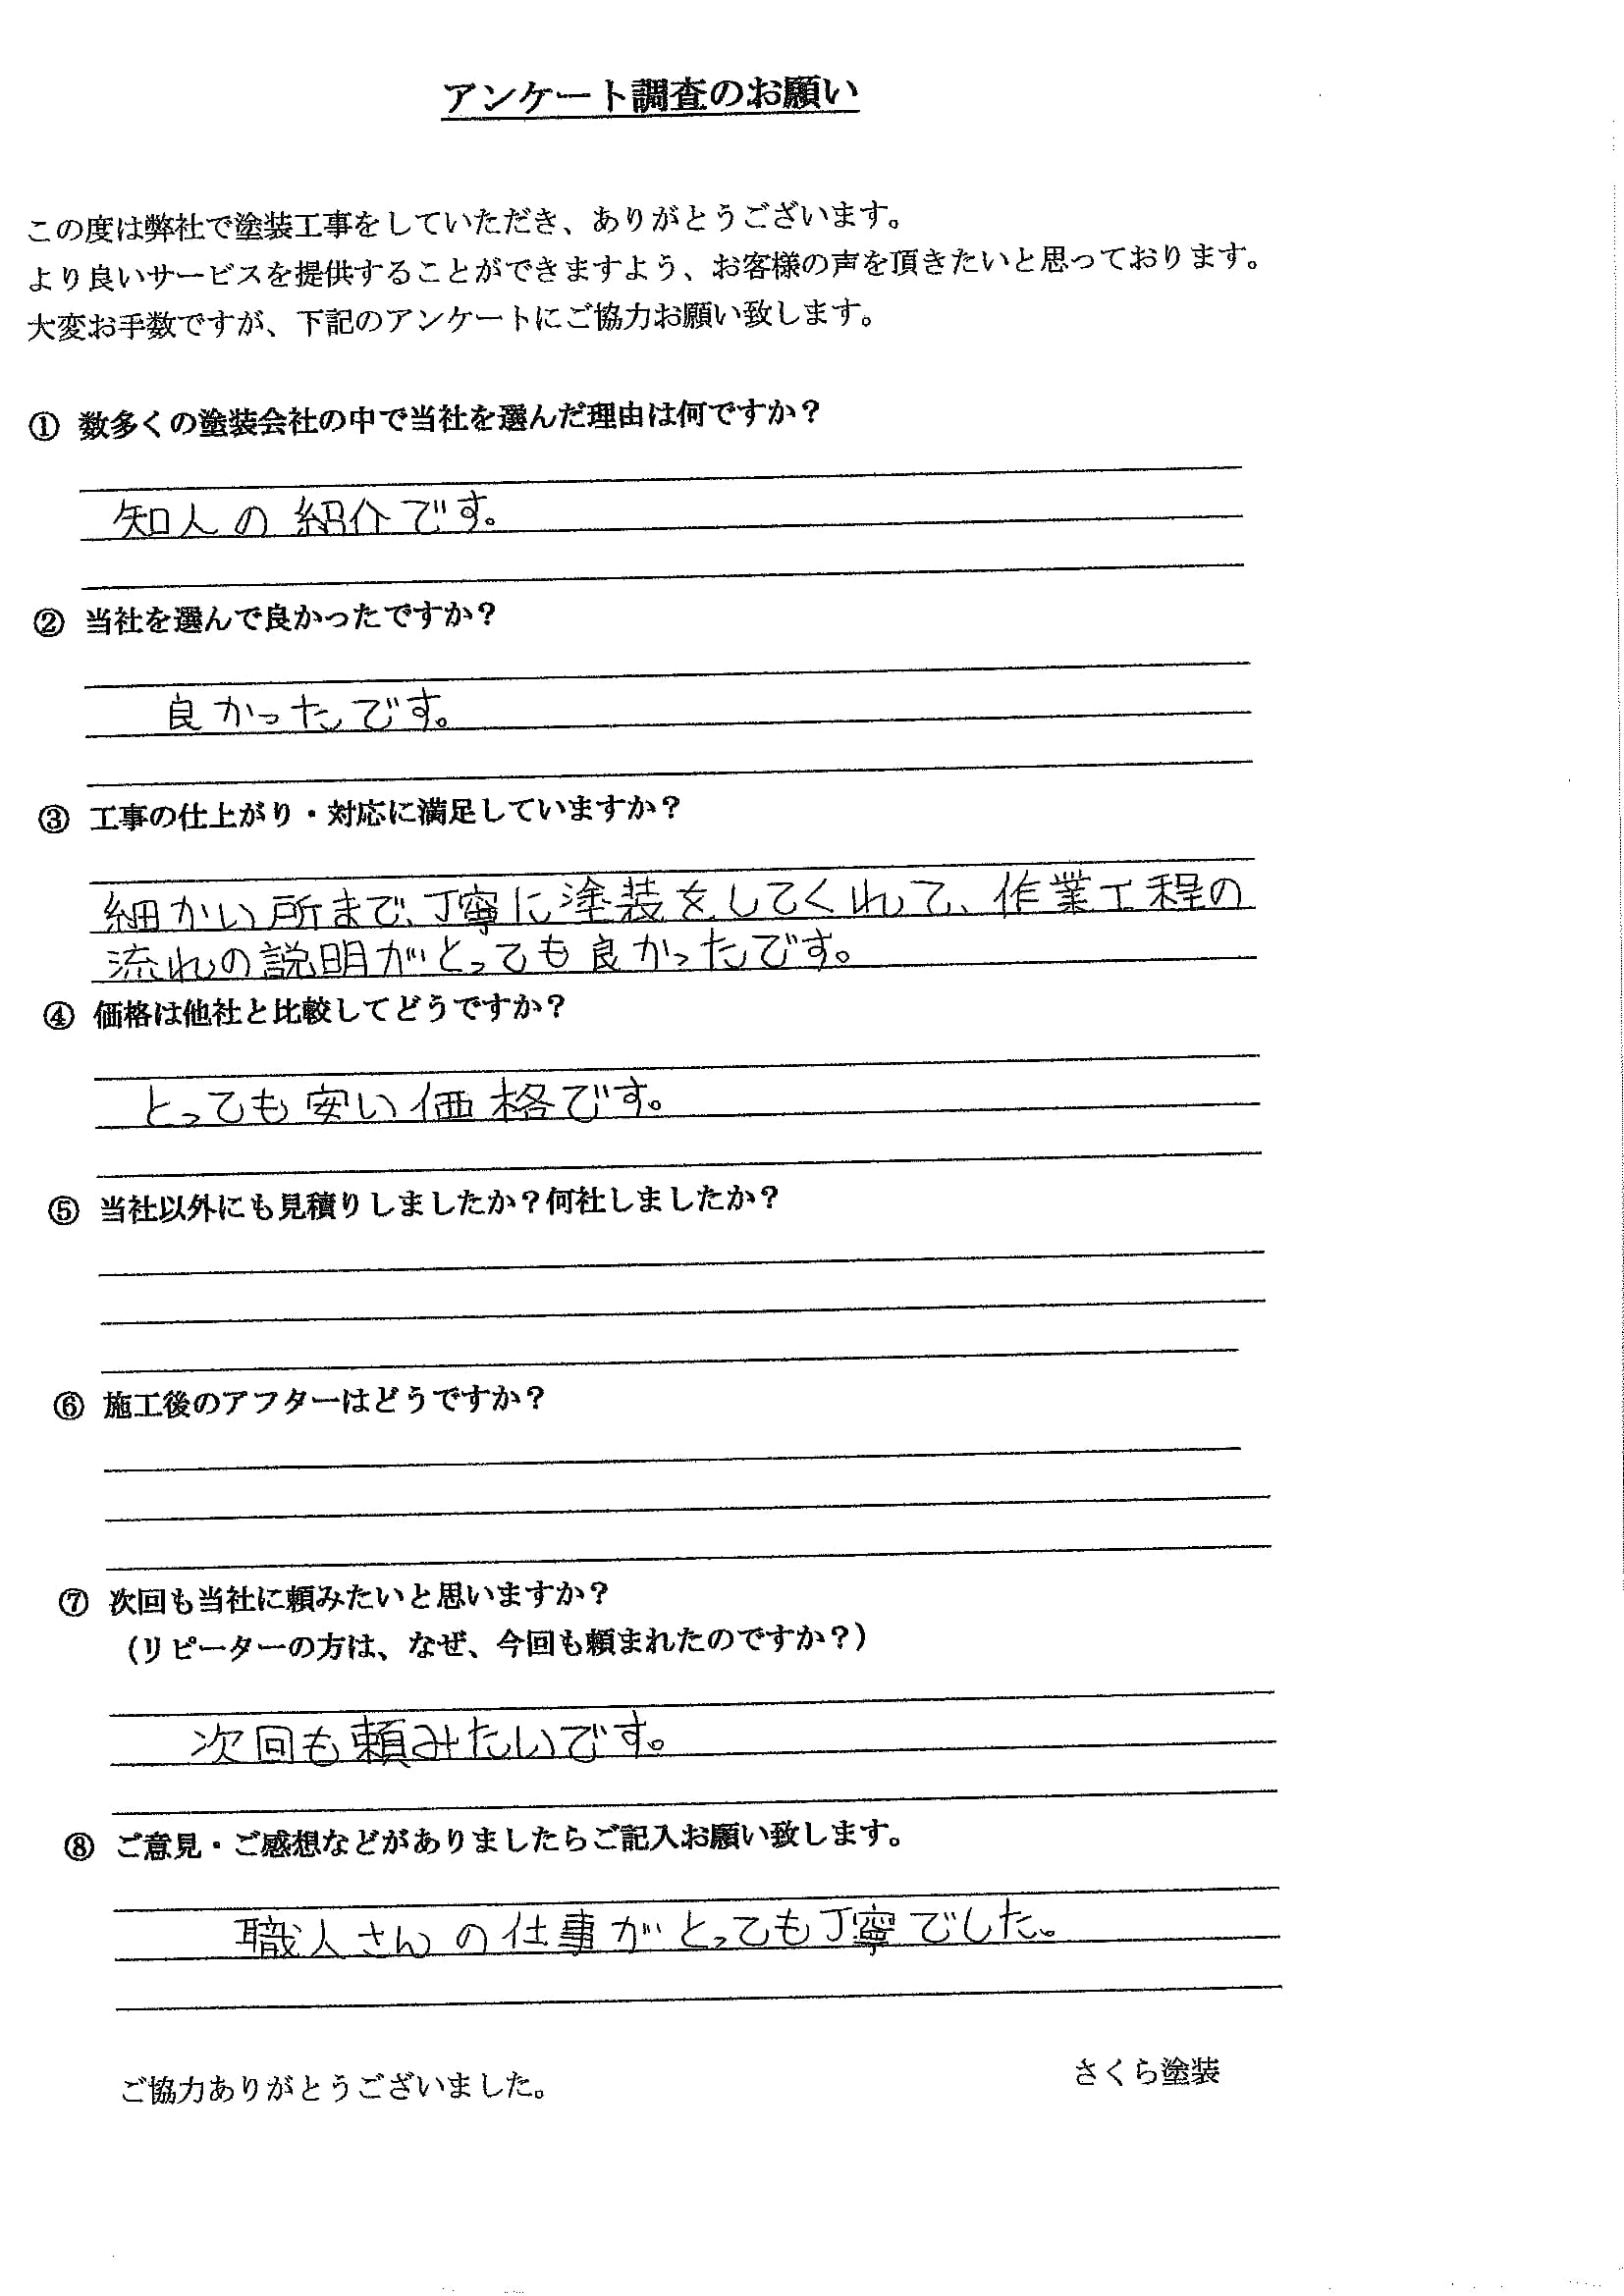 アンケート調査のお願い
この度は弊社で塗装工事をしていただき、ありがとうございます。
より良いサービスを提供することができますよう、お客様の声を頂きたいと思っております。
大変お手数ですが、下記のアンケートにご協力お願い致します。
① 数多くの塗装会社の中で当社を選んだ理由は何ですか？
知人の紹介です。
② 当社を選んで良かったですか？
良かったです。
③ 工事の仕上がり・対応に満足していますか？
細かい所まで、丁寧に塗装をしてくれて、作業工程の
流れの説明がとっても良かったです。
④ 価格は他社と比較してどうですか？
とっても安い価格です。
⑤ 当社以外にも見積りしましたか？何社しましたか？
⑥ 施工後のアフターはどうですか？
⑦ 次回も当社に頼みたいと思いますか？
（リピーターの方は、なぜ、今回も頼まれたのですか？）
次回も頼みたいです。
⑧ ご意見・ご感想などがありましたらご記入お願い致します。
職人さんの仕事がとっても丁寧でした。
ご協力ありがとうございました。
さくら塗装